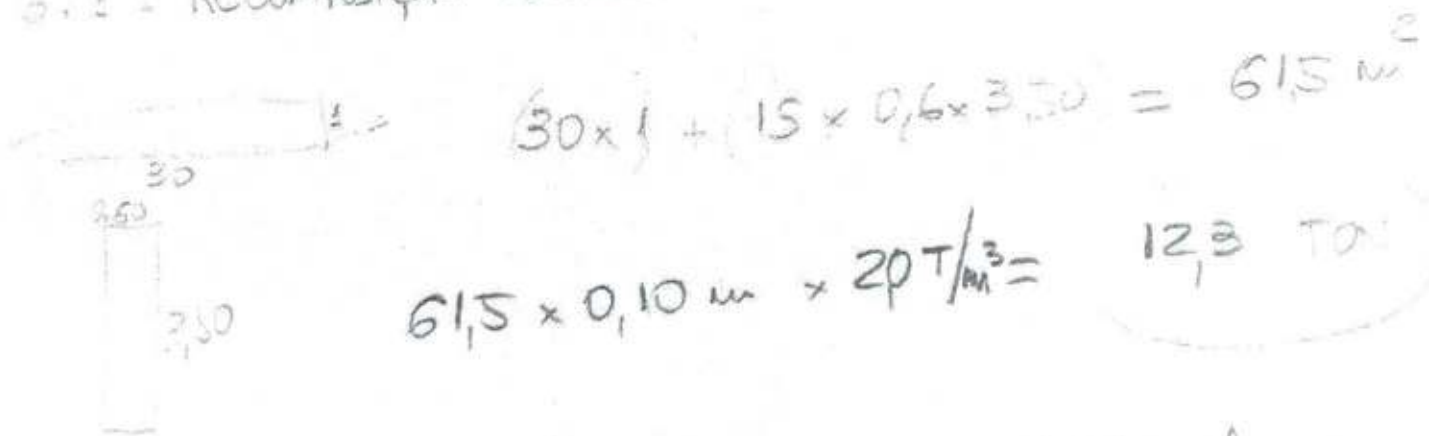 30
30x1 + 15 x 0,6 x 3,50 = 61,5 m²
0,60
3,50
61,5 x 0,10 m x 2,0 T/m³ = 12,3 TON